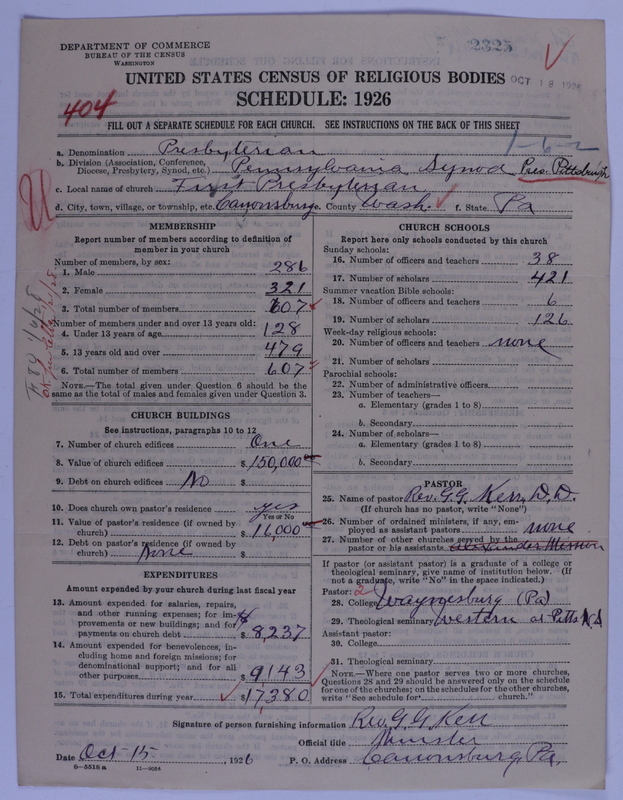 DEPARTMENT OF COMMERCE
BUREAU OF THE CENSUS
WASHINGTON
2323
UNITED STATES CENSUS OF RELIGIOUS BODIES
OCT 18 1926
SCHEDULE: 1926
404
FILL OUT A SEPARATE SCHEDULE FOR EACH CHURCH. SEE INSTRUCTIONS ON THE BACK OF THIS SHEET
1-6-2
a. Denomination Presbyterian
b. Division (Association, Conference, Diocese, Presbytery, Synod, etc.) Pennsylvania Synod Pres. Pittsburgh
c. Local name of church First Presbyterian
d. City, town, village, or township, etc. Canonsburg e. County Wash f. State Pa
MEMBERSHIP
Report number of members according to definition of
member in your church
Number of members, by sex:
1. Male 286
2. Female 321
3. Total number of members 607
Number of members under and over 13 years old:
4. Under 13 years of age 128
5. 13 years old and over 479
6. Total number of members 607
NOTE.—The total given under Question 6 should be the
same as the total of males and females given under Question 3.
CHURCH BUILDINGS
See instructions, paragraphs 10 to 12
7. Number of church edifices One
8. Value of church edifices $150,000
9. Debt on church edifices No $
10. Does church own pastor's residence yes
Yes or No
11. Value of pastor's residence (if owned by
church) $11,000
12. Debt on pastor's residence (if owned by
church) None $
EXPENDITURES
Amount expended by your church during last fiscal year
13. Amount expended for salaries, repairs,
and other running expenses; for im-
provements or new buildings; and for
payments on church debt $8,237
14. Amount expended for benevolences, in-
cluding home and foreign missions; for
denominational support; and for all
other purposes $9143
15. Total expenditures during year $17,380
CHURCH SCHOOLS
Report here only schools conducted by this church
Sunday schools:
16. Number of officers and teachers 38
17. Number of scholars 421
Summer vacation Bible schools:
18. Number of officers and teachers 6
19. Number of scholars 126
Week-day religious schools:
20. Number of officers and teachers none
21. Number of scholars
Parochial schools:
22. Number of administrative officers
23. Number of teachers—
a. Elementary (grades 1 to 8)
b. Secondary
24. Number of scholars—
a. Elementary (grades 1 to 8)
b. Secondary
PASTOR
25. Name of pastor Rev. G. G. Kerr, D. D.
(If church has no pastor, write "None")
26. Number of ordained ministers, if any, em-
ployed as assistant pastors none
27. Number of other churches served by the
pastor or his assistants Alexander Mission
If pastor (or assistant pastor) is a graduate of a college or
theological seminary, give name of institution below. (If
not a graduate, write "No" in the space indicated.)
Pastor: 2
28. College Waynesburg (Pa)
29. Theological seminary Western at Pitts
Assistant pastor:
30. College
31. Theological seminary
NOTE.—Where one pastor serves two or more churches,
Questions 28 and 29 should be answered only on the schedule
for one of the churches; on the schedules for the other churches,
write "See schedule for church."
Signature of person furnishing information Rev. G. G. Kerr
Official title Minister
Date Oct-15, 1926 P. O. Address Canonsburg Pa.
8—5518a 11—9084